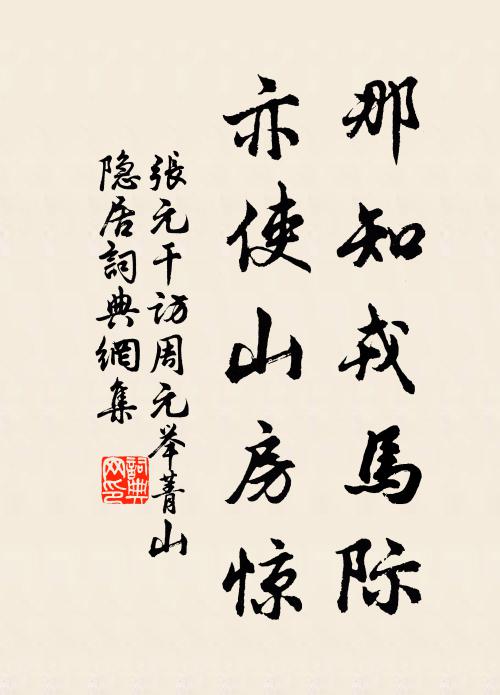 那知戎馬际
亦使山房惊
張元干访周元举菁山
隐居詞典網集
詞典网印